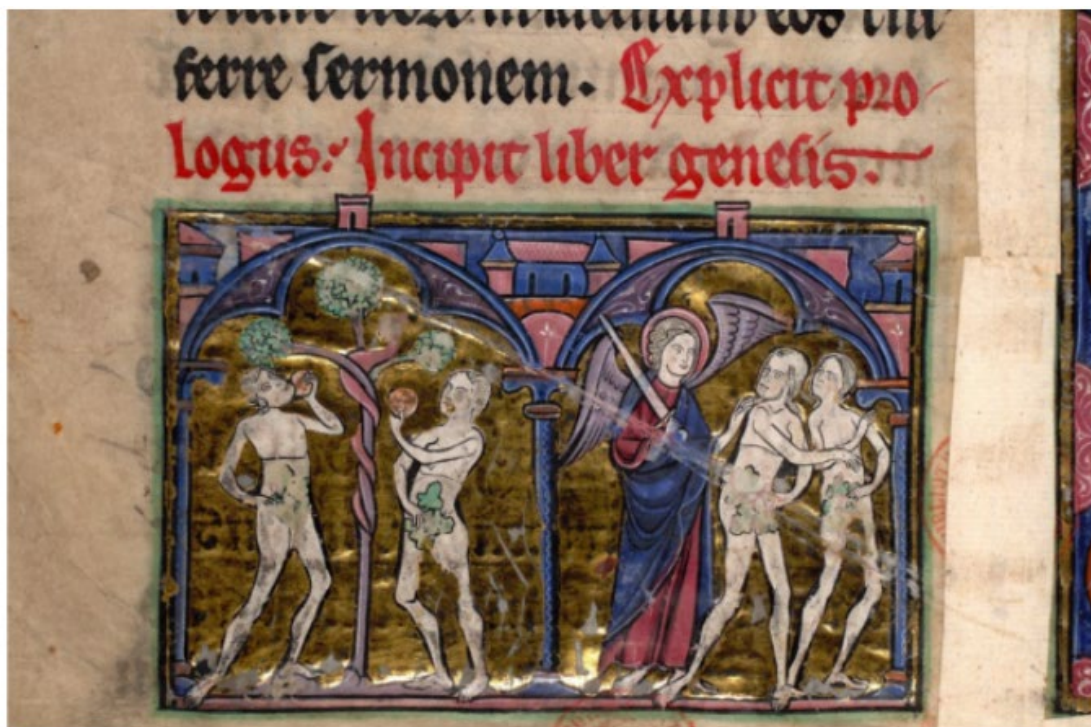 in latinum eos
ferre ſermonem. Explicit pro
logus. Incipit liber geneſis.